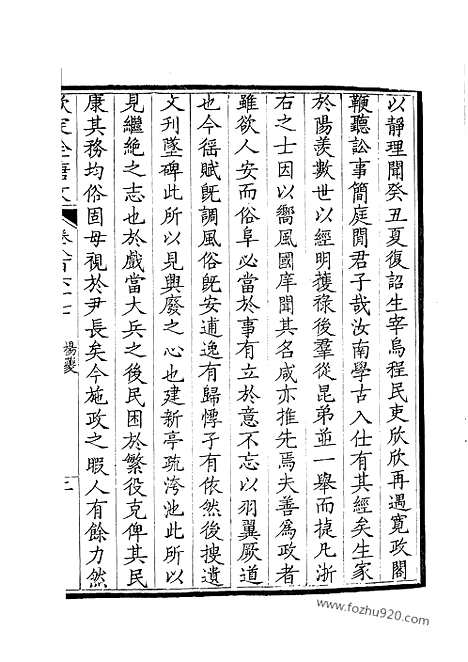 以靜理聞癸丑夏復詔生宰烏程民吏欣欣再遇寬政閣
鞭聽訟事簡庭閒君子哉汝南學古入仕有其經矣生家
於陽羨數世以經明擭祿後羣從昆弟並一舉而捷凡浙
右之士因以嚮風國庠聞其名咸亦推先焉夫善為政者
雖欲人安而俗阜必當於事有立於意不忘以羽翼厥道
也今徭賦旣調風俗旣安逋逸有歸惸子有依然後搜遺
文刊墜碑此所以見興廢之心也建新亭疏洿池此所以
見繼絶之志也於戲當大兵之後民困於繁役克俾其民
康其務均俗固毋視於尹長矣今施政之暇人有餘力然
欽定全唐文
卷八百六十七
楊夔
三
www.fozhu920.com